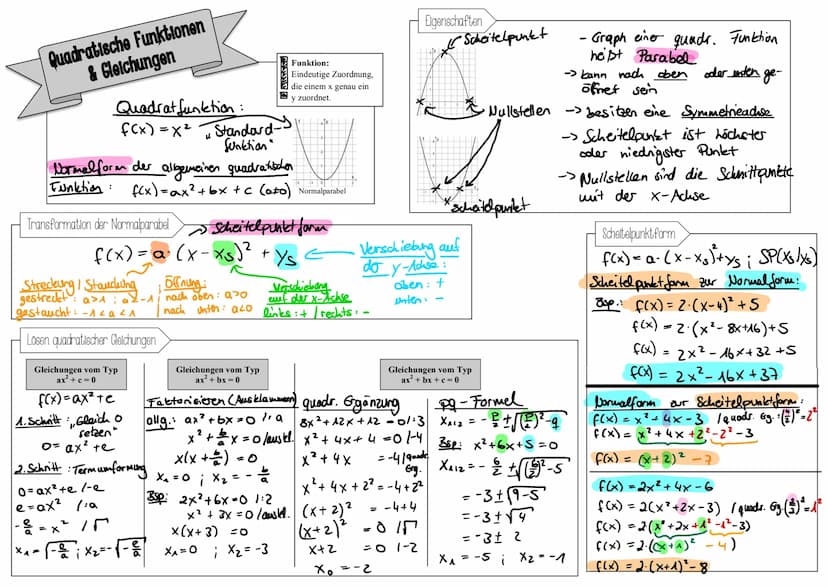 Quadratische Funktionen
& Gleichungen
Funktion:
Eindeutige Zuordnung,
die einem x genau ein
y zuordnet.
Quadratfunktion:
f(x) = x² „Standard-
funktion"
Normalform der allgemeinen quadratischen
Funktion: f(x) = ax² + bx + c (a≠0)
Normalparabel
Eigenschaften
Scheitelpunkt
Nullstellen
Scheitelpunkt
- Graph einer quadr. Funktion
heißt Parabel
-> kann nach oben oder unten ge-
öffnet sein
-> besitzen eine Symmetrieachse
-> Scheitelpunkt ist höchster
oder niedrigster Punkt
-> Nullstellen sind die Schnittpunkte
mit der x-Achse
Transformation der Normalparabel
-> Scheitelpunktform
f(x) = a · (x - xs)² + ys
Verschiebung auf
der y-Achse:
oben: +
unten: -
Streckung / Stauchung
gestreckt: a>1 ; a<-1
gestaucht: -1<a<1
Öffnung:
nach oben: a>0
nach unten: a<0
Verschiebung
auf der x-Achse
links: + / rechts: -
Scheitelpunktform
f(x) = a · (x - xs)² + ys ; SP(xs/ys)
Scheitelpunktform zur Normalform:
Bsp.: f(x) = 2·(x-4)² + 5
f(x) = 2·(x² - 8x+16) + 5
f(x) = 2x² - 16x + 32 + 5
f(x) = 2x² - 16x + 37
Normalform zur Scheitelpunktform:
f(x) = x² + 4x - 3 / quadr. Eg.: (4/2)² = 2²
f(x) = x² + 4x + 2² - 2² - 3
f(x) = (x+2)² - 7
f(x) = 2x² + 4x - 6
f(x) = 2(x² + 2x - 3) / quadr. Eg. (2/2)² = 1²
f(x) = 2(x² + 2x + 1² - 1² - 3)
f(x) = 2·((x+1)² - 4)
f(x) = 2·(x+1)² - 8
Lösen quadratischer Gleichungen
Gleichungen vom Typ
ax² + c = 0
f(x) = ax² + c
1. Schritt: „Gleich 0
setzen"
0 = ax² + c
2. Schritt: Termumformung
0 = ax² + c /-c
-c = ax² /:a
-c/a = x² /√
x₁ = √(-c/a) ; x₂ = -√(-c/a)
Gleichungen vom Typ
ax² + bx = 0
Faktorisieren (Ausklammern)
allg.: ax² + bx = 0 /:a
x² + b/a x = 0 /auskl.
x(x + b/a) = 0
x₁ = 0 ; x₂ = -b/a
Bsp: 2x² + 6x = 0 /:2
x² + 3x = 0 /auskl.
x(x+3) = 0
x₁ = 0 ; x₂ = -3
Gleichungen vom Typ
ax² + bx + c = 0
quadr. Ergänzung
3x² + 12x + 12 = 0 /:3
x² + 4x + 4 = 0 /-4
x² + 4x = -4 /quadr.
Erg.
x² + 4x + 2² = -4 + 2²
(x+2)² = -4+4
(x+2)² = 0 /√
x+2 = 0 /-2
x₀ = -2
pq-Formel
x₁/₂ = -p/2 ± √((p/2)² - q)
Bsp: x² + 6x + 5 = 0
x₁/₂ = -6/2 ± √((6/2)² - 5)
= -3 ± √(9-5)
= -3 ± √4
= -3 ± 2
x₁ = -5 ; x₂ = -1